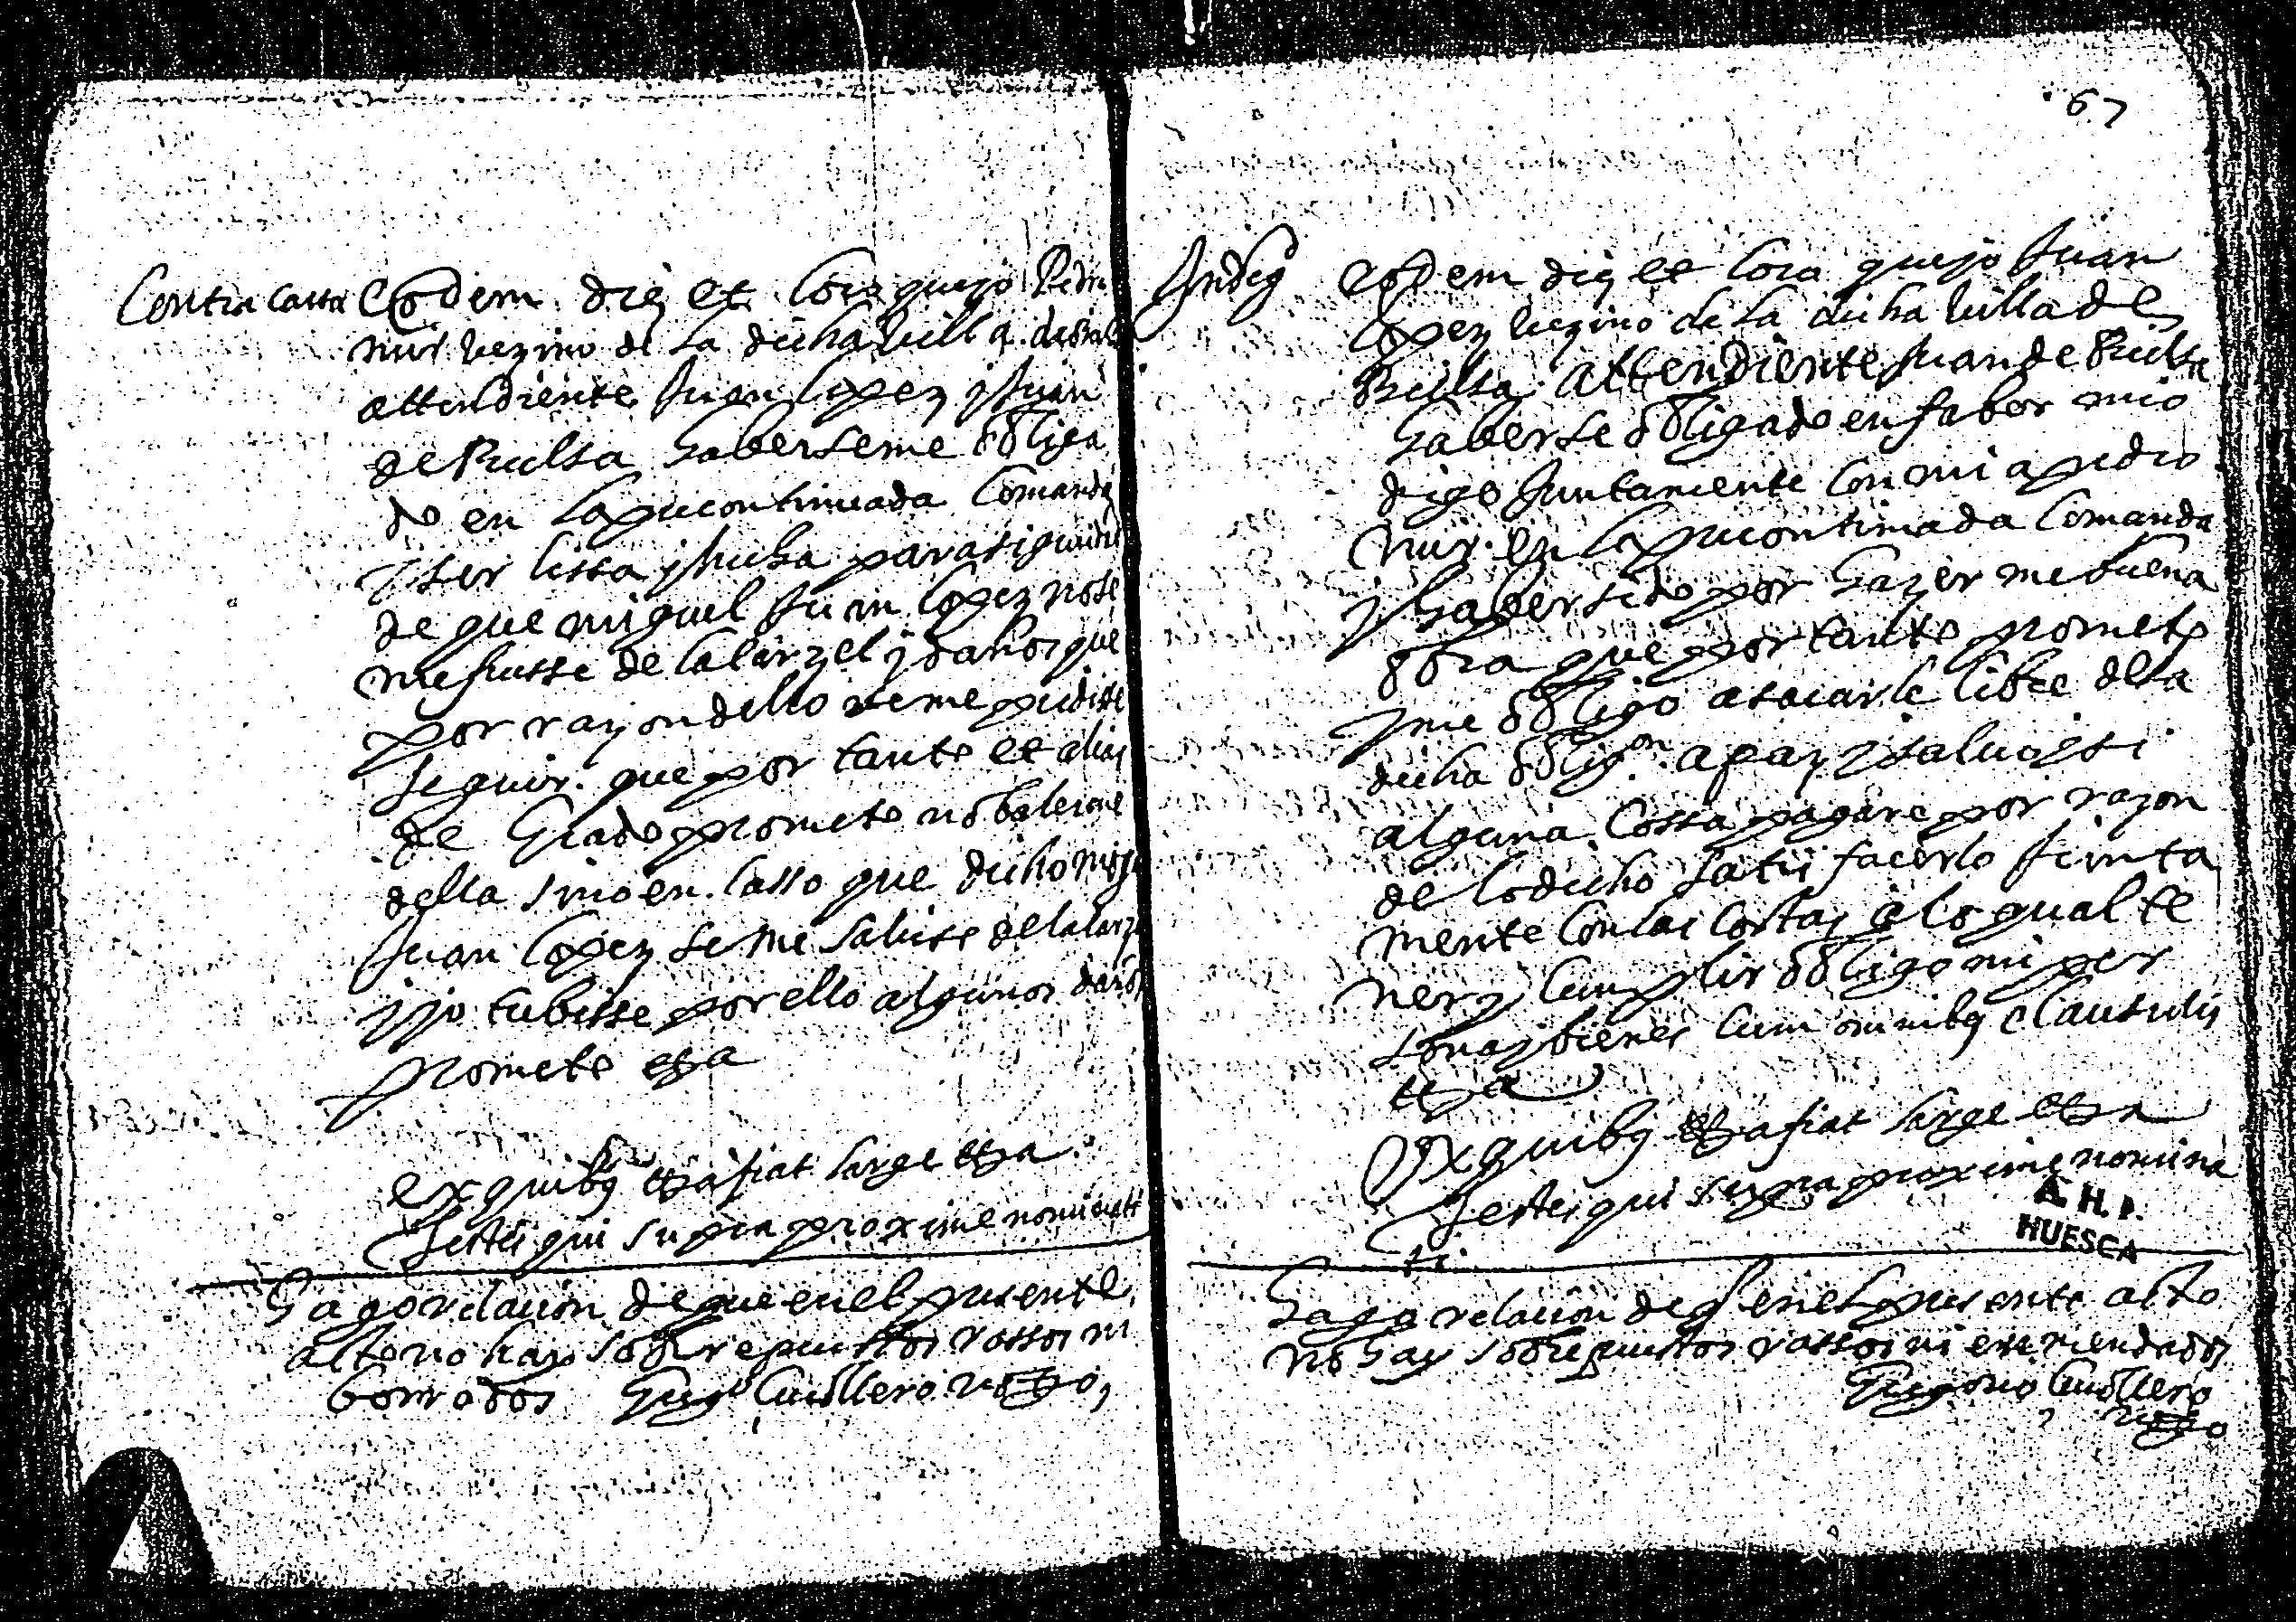 Contra carta Eodem die et loco que yo Pedro
nuir vezino de la dicha villa de
attendiente Juan Lopez y Juan
de Ruelsa haberseme obliga
do en la precontinuada Comanda
y ser lissa y hecha para seguridad
de que miguel Juan Lopez no se
me fuesse de la carzel y daños que
por razon dello se me pudiese
seguir. que por tanto et alias
de Grado prometo no balerme
della sino en casso que dicho miguel
Juan Lopez se me saliese de la carzel
y yo tubiesse por ello algunos daños
prometo etta
ex quibus etta fiat large etta
Testes qui supra proxime nominati
Hago relacion de que en el presente
acto no hay sobrepuestos rassos ni
borrados Greg° Cuiollero notto,
67
Indeg Eodem die et loco que yo Juan
Lopez vezino de la dicha villa de
Bielsa attendiente Juan de Ruelsa
haberse obligado en fabor mio
digo Juntamente con mi a pedro
nuir en la precontinuada Comanda
y haber sido por hazerme buena
obra que por tanto prometo
y me obligo a sacarle libre de la
dicha oblig.on a paz y salvo y si
alguna cossa pagare por razon
de lo dicho satisfacerlo Junta
mente con las costas a lo qual te
ner y cumplir obligo mi per
sona y bienes cum omnibus clausulis
etta
Ex quibus etta fiat large etta
Testes qui supra proxime nomina
ti
A. H. P.
HUESCA
Hago relacion de q en el presente acto
no hay sobrepuestos rassos ni enmendados
Gregorio Cuiollero
notto